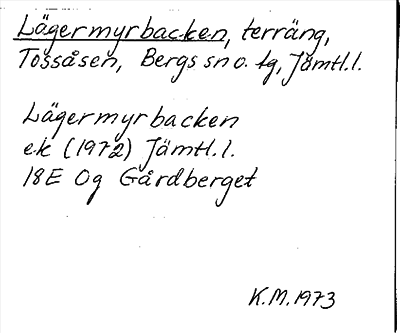 Lägermyrbacken, terräng,
Tossåsen, Bergs sn o. tg, Jämtl.l.
Lägermyrbacken
ek (1972) Jämtl.l.
18E 0g Gårdberget
K.M. 1973